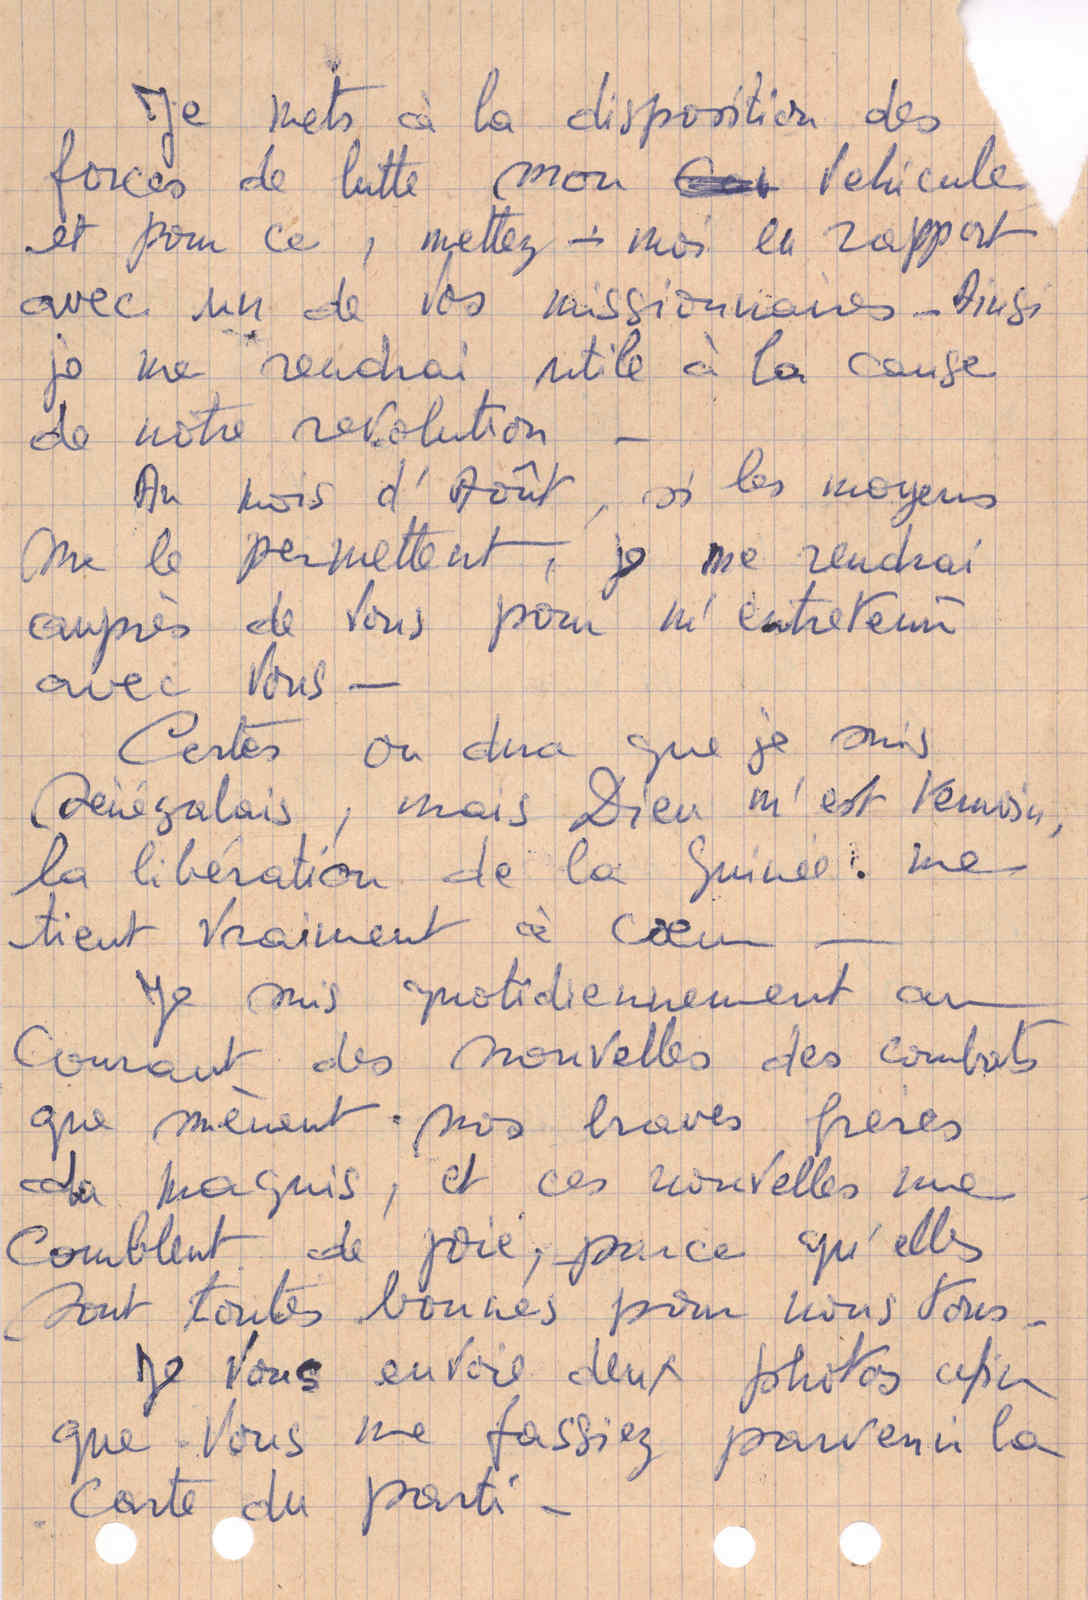 Je mets à la disposition des
forces de lutte mon vehicule
et pour ce, mettez-moi en rapport
avec un de vos missionnaires - Ainsi
je me rendrai utile à la cause
de notre revolution -
Au mois d'Août, si les moyens
me le permettent, je me rendrai
auprès de vous pour m'entretenir
avec vous -
Certes on dira que je suis
Sénégalais, mais Dieu m'est temoin,
la libération de la Guinée me
tient vraiment à coeur -
Je suis quotidiennement au
Courant des nouvelles des combats
que mènent nos braves frères
du maquis, et ces nouvelles me
Comblent de joie, parce qu'elles
sont toutes bonnes pour nous tous -
Je vous envoie deux photos afin
que vous me fassiez parvenir la
Carte du parti -